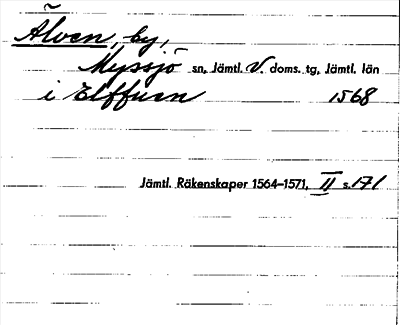 Älven, by,
Myssjö sn, Jämtl. V. doms. tg, Jämtl. län
i Elffuen 1568
Jämtl. Räkenskaper 1564-1571, II s. 171